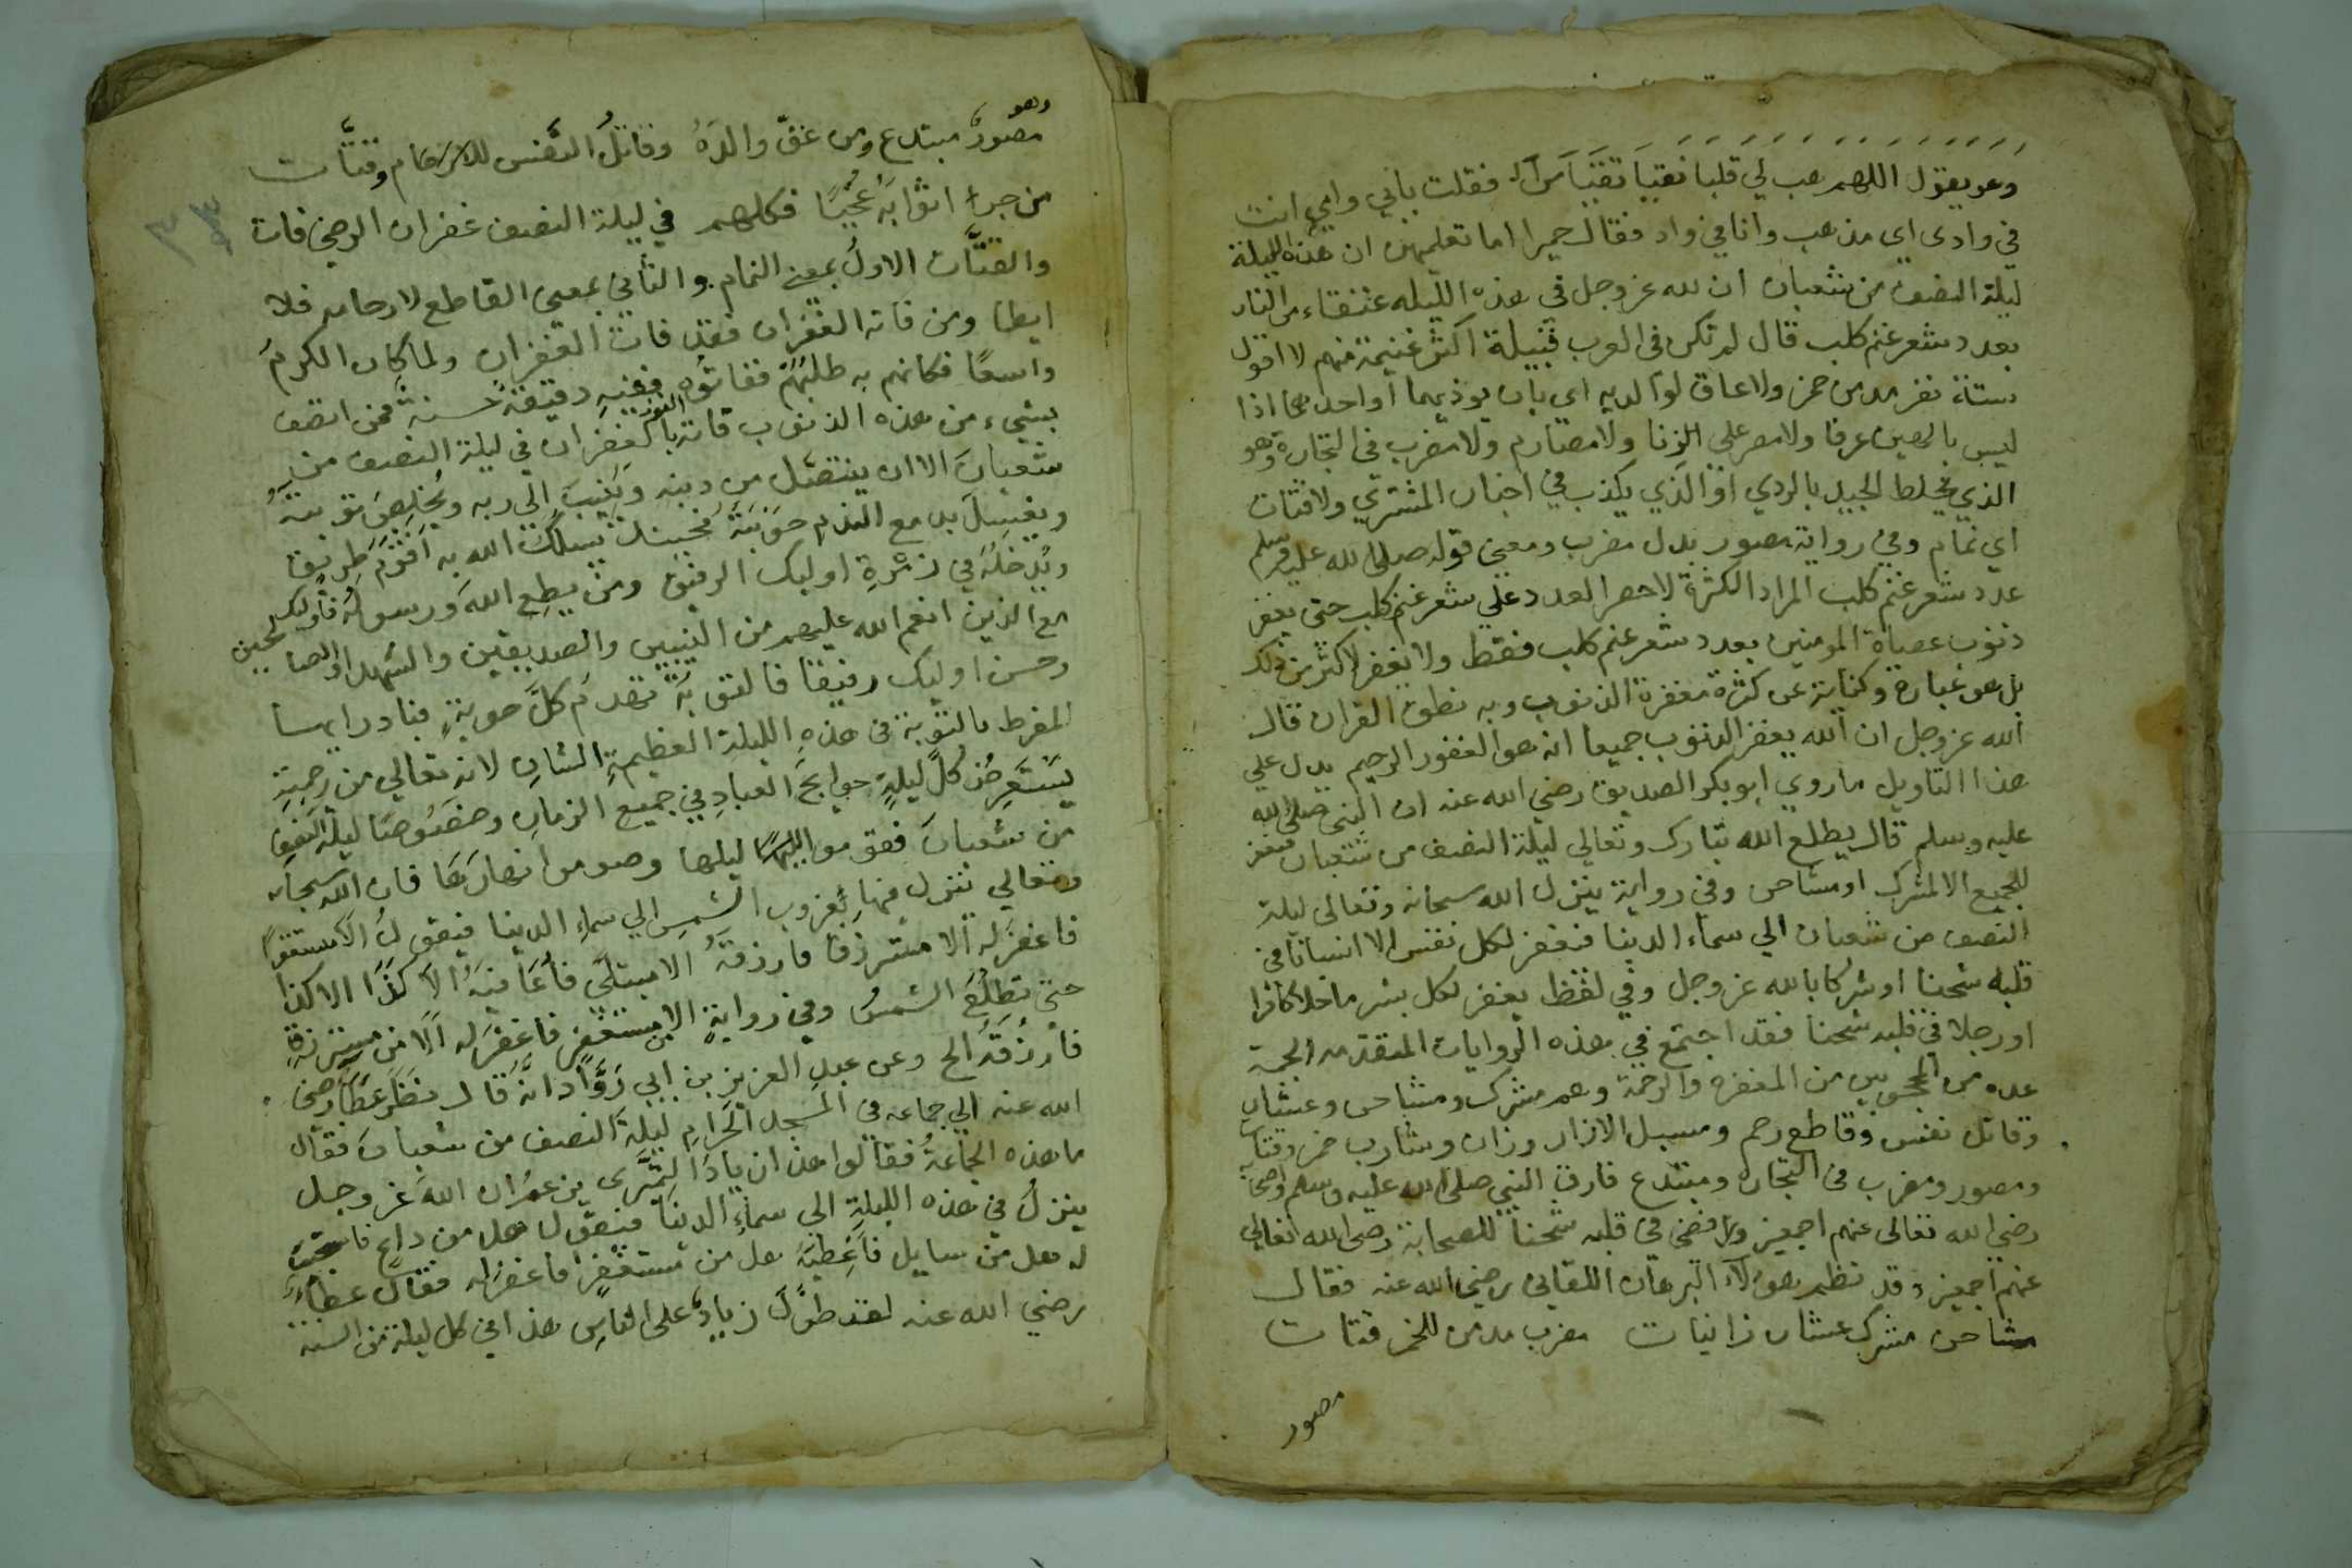 وهو يقول اللهم هب لي قلبا نقيا تقيا من الـ فقلت بابي وامي انت
في وادى اي مذهب وانا في واد فقال حميرا اما تعلمين ان هذه الليلة
ليلة النصف من شعبان ان لله عز وجل في هذه الليله عتقاء من النار
بعدد شعر غنم كلب قال لم تكن في العرب قبيلة اكثر غنيمة منهم لا اقول
ستة نفر مدمن خمر ولا عاق لوالديه اي بان يوذيهما او احدهما اذا
ليس بالهين عرفا ولا مصر على الزنا ولا مصارم ولا مضرب في التجارة وهو
الذي يخلط الجيد بالردي او الذي يكذب في اخبار المشتري ولا قتات
اي نمام وفي رواية مصور بدل مضرب ومعنى قوله صلى الله عليه وسلم
عدد شعر غنم كلب المراد الكثرة لا حصر العدد علي شعر غنم كلب حتى يغفر
ذنوب عصاة المومنين بعدد شعر غنم كلب فقط ولا يغفر لاكثر من ذلك
بل هو عبارة وكناية عن كثرة مغفرة الذنوب وبه نطق القران قال
الله عز وجل ان الله يغفر الذنوب جميعا انه هو الغفور الرحيم يدل علي
هذا التاويل ما روي ابو بكر الصديق رضي الله عنه ان النبي صلى الله
عليه وسلم قال يطلع الله تبارك وتعالي ليلة النصف من شعبان فيغفر
للجميع الا لمشرك او مشاحن وفي رواية ينزل الله سبحانه وتعالى ليلة
النصف من شعبان الي سماء الدينا فيغفر لكل نفس الا انسانا في
قلبه شحنا او شركا بالله عز وجل وفي لفظ يغفر لكل بشر ما خلا كافرا
او رجلا في قلبه شحنا فقد اجتمع في هذه الروايات المتقدمه الجمة
عده من المحجوبين من المغفرة والرحمة وهم مشرك ومشاحن وعشار
وقاتل نفس وقاطع رحم ومسبل الازار وزان وشارب خمر وقتات
ومصور ومضرب في التجاره ومبتدع فارق النبي صلى الله عليه وسلم واصحابه
رضي الله تعالى عنهم اجمعين ورافضي في قلبه شحنا للصحابة رضى الله تعالي
عنهم اجمعين وقد نظم هولاء البرهان اللقاني رضي الله عنه فقال
مشاحن مشرك عشار زانيات مضرب مدمن للخمر قتات
مصور
وهو
مصور مبتدع ومن عق والده وقاتل النفس للارحام وقتات
من جر اثوابه عجبا فكلهم في ليلة النصف غفران الرضي فات
والقتات الاول بمعنى النمام والثاني بمعنى القاطع لارحامه فلا
ايطا ومن فاته الغفران فقد فات الغفران ولما كان الكرم
واسعا فكانهم به طلبهم ففاتوه ففيه دقيقة حسنة فمن اتصف
بشيء من هذه الذنوب فاته الفوز بالغفران في ليلة النصف من
شعبان الا ان يتنصل من دينه وينيب الى ربه ويخلص توبته
ويغسل بدمع الندم حوبته فحينئذ يسلك الله به اقوم طريق
ويدخله في زمرة اوليك الرفيق ومن يطع الله ورسوله فاوليك
مع الذين انعم الله عليهم من النبيين والصديقين والشهدا والصالحين
وحسن اوليك رفيقا فالتوبة تهدم كل حوبة فبادر ايها
المفرط بالتوبة في هذه الليلة العظيمة الشان لانه تعالي من رحمته
يستعرض كل ليلة حوايج العباد في جميع الزمان وخصوصا ليلة النصف
من شعبان فقوموا ليلها وصوموا نهارها فان الله سبحانه
وتعالي ينزل فيها بغروب الشمس الي سماء الدينا فيقول الا مستغفرا
فاغفر له الا مسترزقا فارزقه الا مبتلى فاعافيه الا كذا الا كذا
حتى تطلع الشمس وفي رواية الا من مستغفر فاغفر له الا من مسترزق
فارزقه الخ وعن عبد العزيز بن ابي رواد انه قال نظر عطا رضي
الله عنه الي جماعه في المسجد الحرام ليلة النصف من شعبان فقال
ما هذه الجماعة فقالوا هذا زيادا النميرى يزعم ان الله عز وجل
ينزل في هذه الليلة الي سماء الدينا فيقول هل من داع فاستجيب
له هل من سايل فاعطيه هل من مستغفر فاغفر له فقال عطاء
رضي الله عنه لقد طول زياد على الناس هذا في كل ليلة من السنة